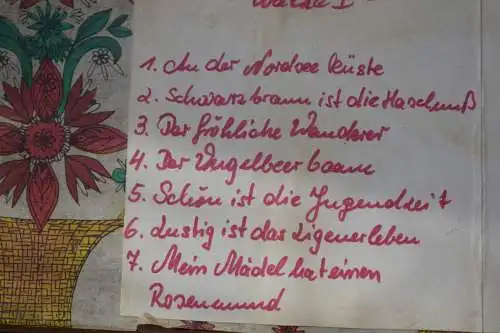 Walze I
1. An der Nordsee küste
2. Schwarzbraun ist die Haselnuß
3. Der fröhliche Wanderer
4. Der Vugelbeerbaam
5. Schön ist die Jugendzeit
6. Lustig ist das Zigeunerleben
7. Mein Mädel hat einen
Rosenmund